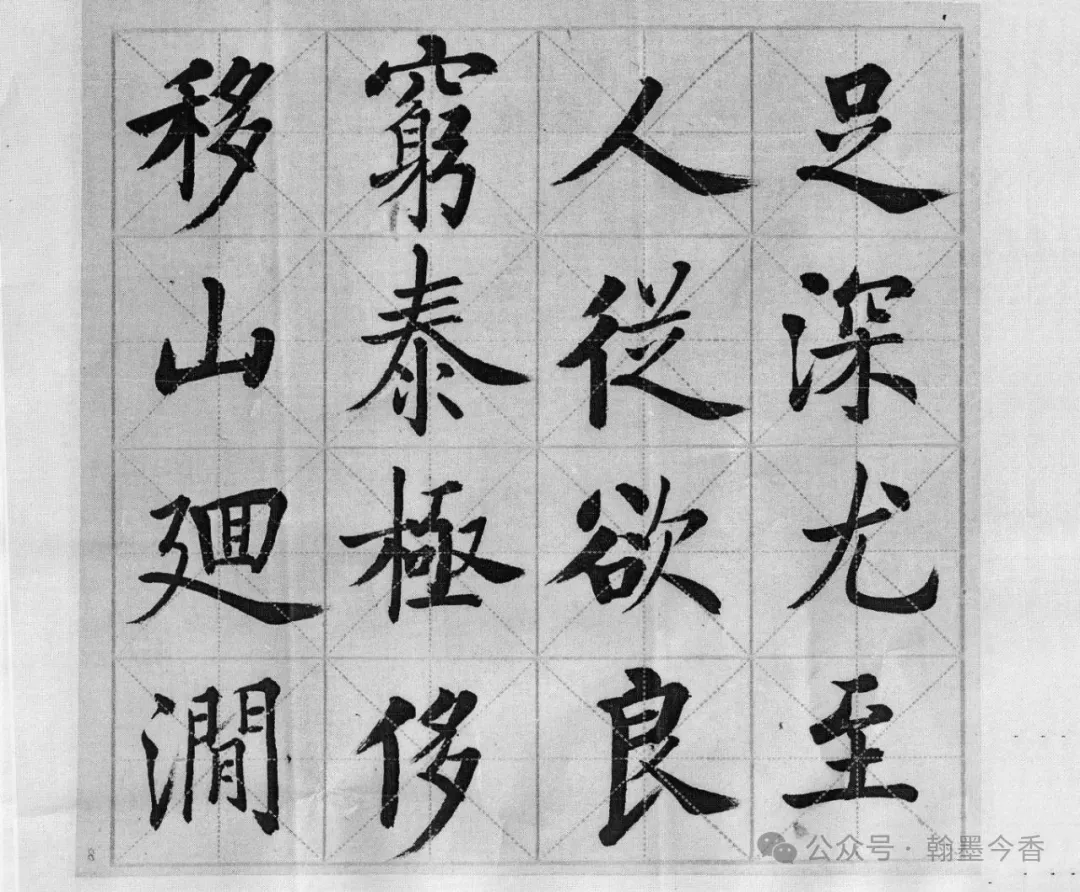 足深尤至
人從欲良
窮泰極侈
移山廻澗
8
公众号·翰墨今香